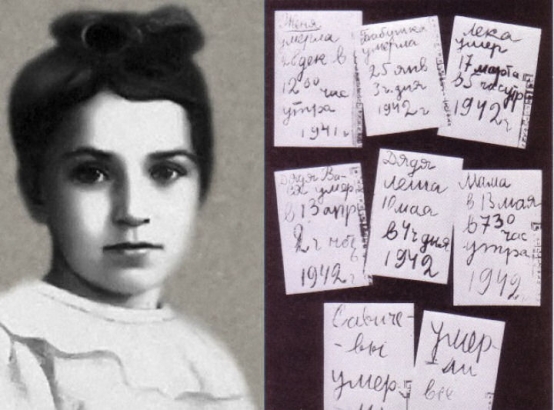 Женя
умерла
28 дек в
12 00 час
утра
1941 г
Бабушка
умерла
25 янв
3 ч дня
1942 г
Лека
умер
17 марта
в 5 час утр
1942 г
Дядя Ва-
ся умер
в 13 апр
2 ч ноч
1942 г
Дядя
Леша
10 мая
в 4 ч дня
1942
Мама
в 13 мая
в 7 30
час
утра
1942
Савиче-
-вы
умер
умер-
ли
все